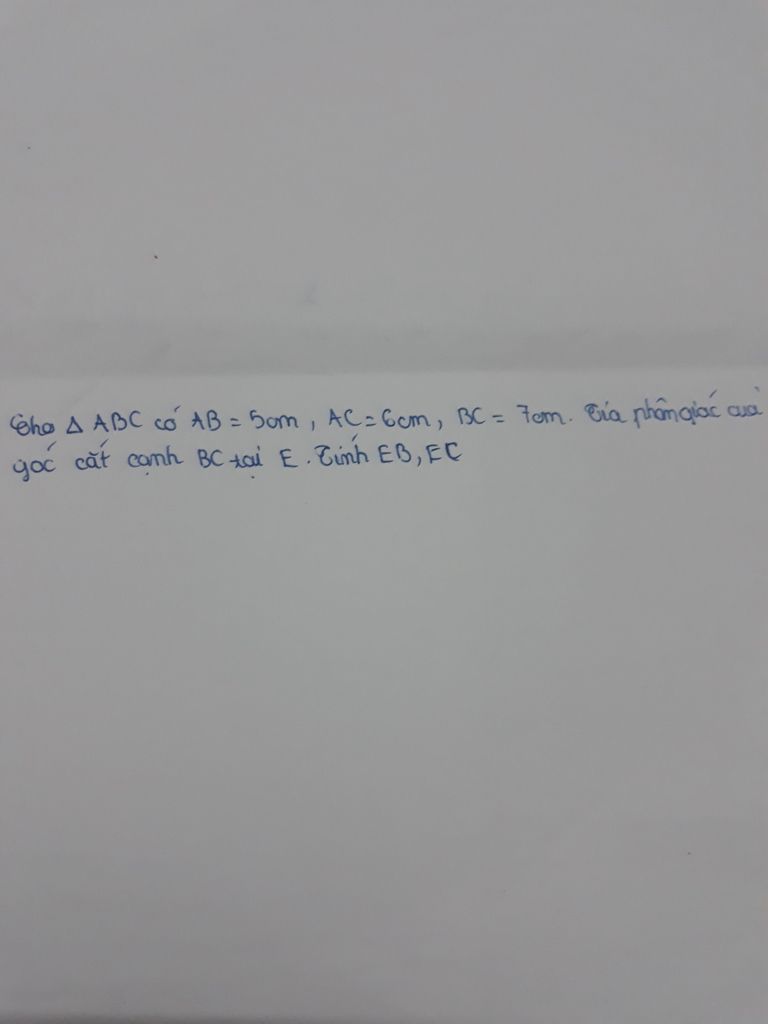 Cho Δ ABC có AB = 5cm, AC = 6cm, BC = 7cm. Tia phân giác của
góc cắt cạnh BC tại E. Tính EB, EC